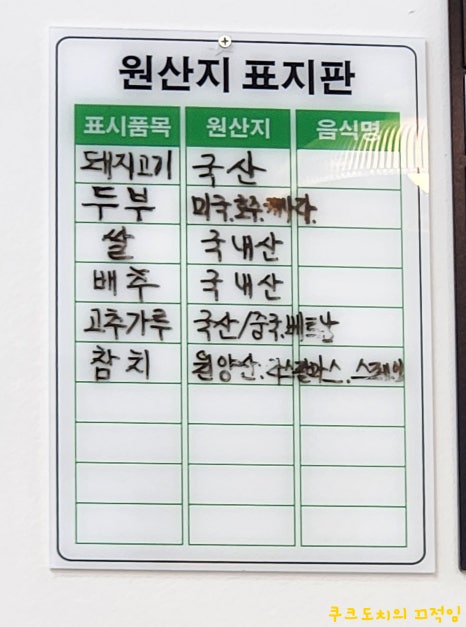 원산지 표지판
표시품목 원산지 음식명
돼지고기 국산
두부 미국.호주.
쌀 국내산
배추 국내산
고추가루 국산/중국.베트남
참치 원양산. 스페인
쿠크도치의 끄적임